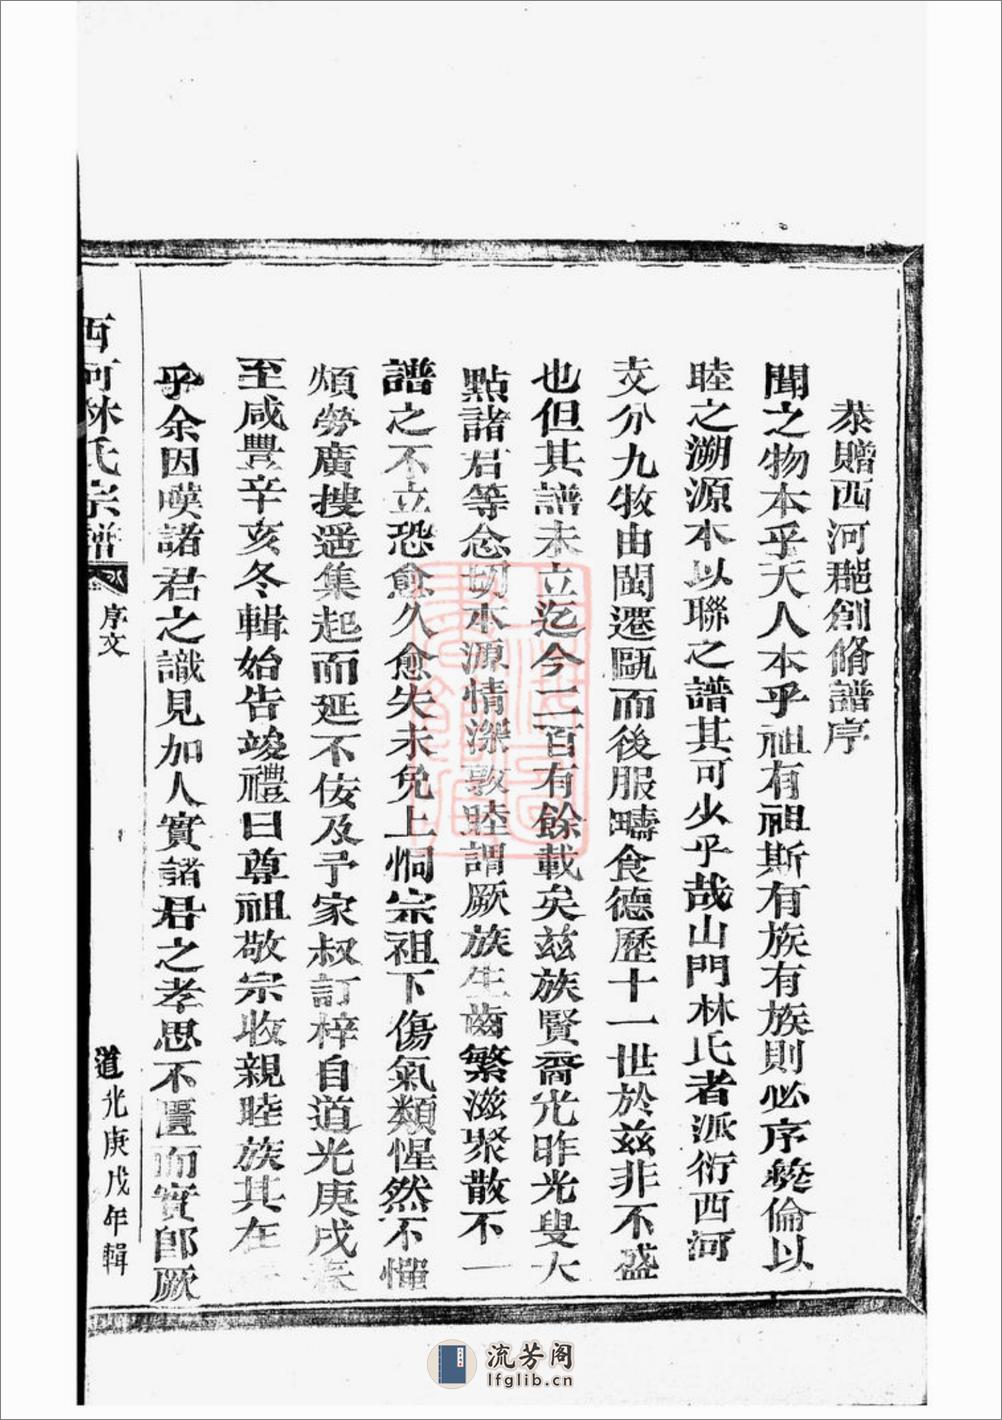 恭贈西河郡創脩譜序
聞之物本乎天人本乎祖有祖斯有族有族則必序彝倫以
睦之溯源本以聯之譜其可少乎哉山門林氏者派衍西河
支分九牧由閩遷甌而後服疇食德歷十一世於茲非不盛
也但其譜未立迄今二百有餘載矣茲族賢裔光昨光叟大
點諸君等念切本源情深敦睦謂厥族生齒繁滋聚散不一
譜之不立恐愈久愈失未免上恫宗祖下傷氣類惺然不憚
煩勞廣搜遥集起而延不佞及予家叔訂梓自道光庚戌春
至咸豐辛亥冬輯始告竣禮曰尊祖敬宗收親睦族其在
乎余因嘆諸君之識見加人實諸君之孝思不匱而實郎厥
西河林氏宗譜
序文
道光庚戌年輯
流芳阁
lfglib.cn